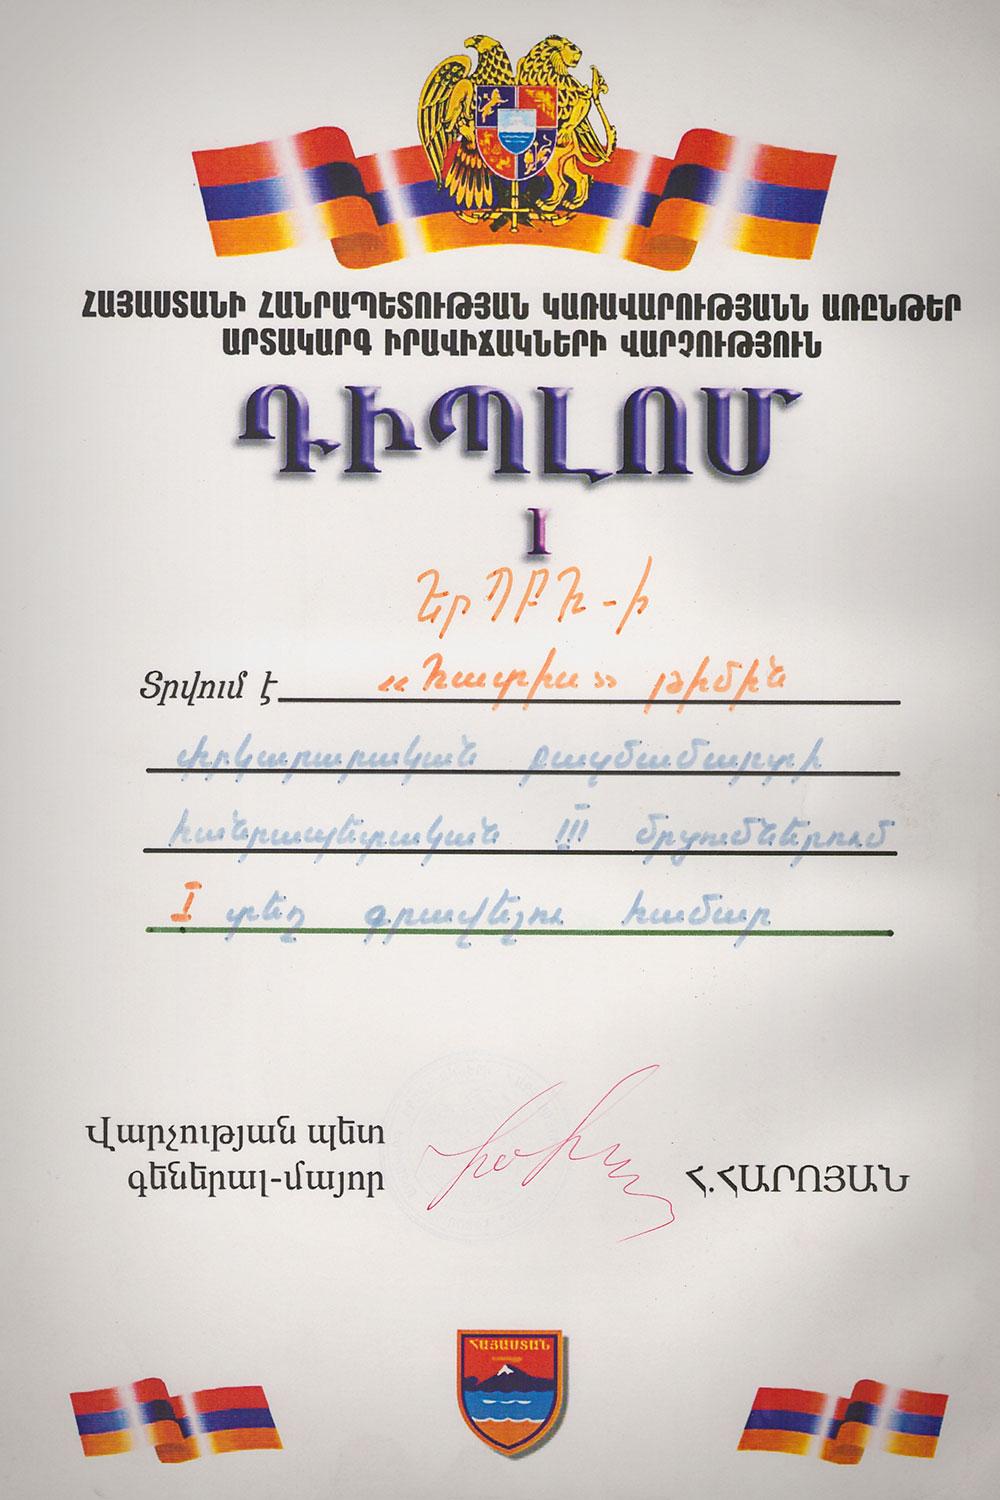 ՀԱՅԱՍՏԱՆԻ ՀԱՆՐԱՊԵՏՈՒԹՅԱՆ ԿԱՌԱՎԱՐՈՒԹՅԱՆՆ ԱՌԸՆԹԵՐ
ԱՐՏԱԿԱՐԳ ԻՐԱՎԻՃԱԿՆԵՐԻ ՎԱՐՉՈՒԹՅՈՒՆ
ԴԻՊԼՈՄ
I
ԵրՊԲՀ-ի
Տրվում է «Հատիս» թիմին
փրկարարական բազմամարտի
հանրապետական III մրցումներում
I տեղ գրավելու համար
Վարչության պետ
գեներալ-մայոր Հ.ՀԱՐՈՅԱՆ
ՀԱՅԱՍՏԱՆ